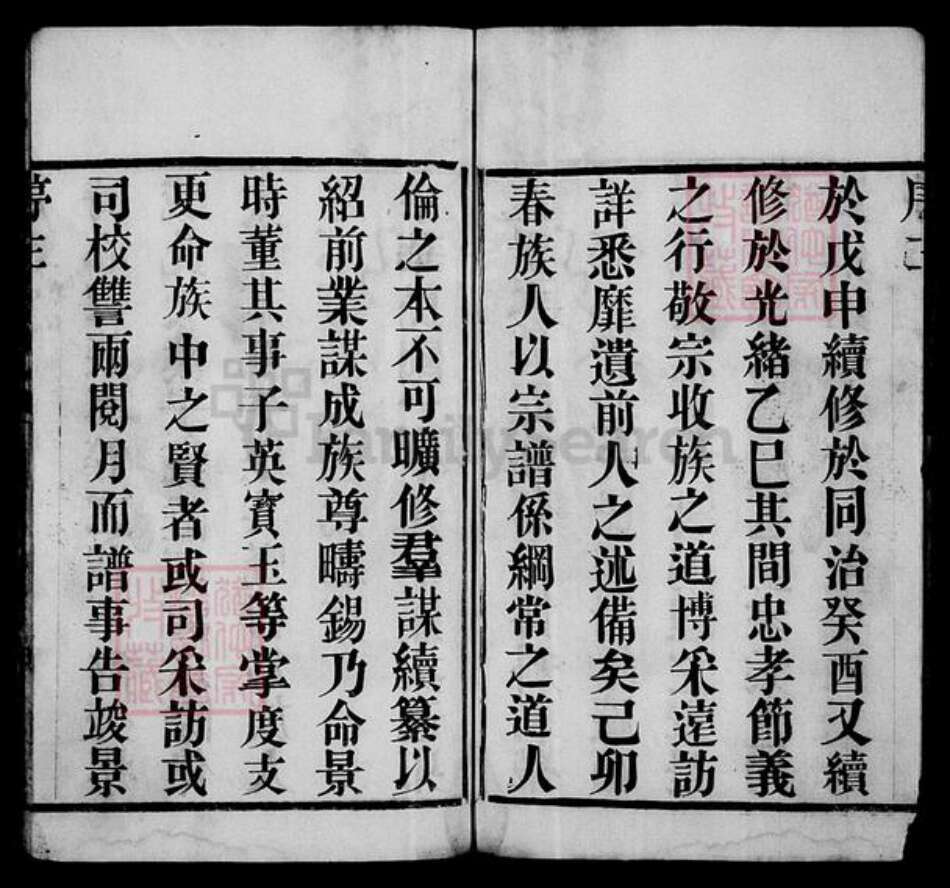 於戊申續修於同治癸酉又續
修於光緒乙巳其間忠孝節義
之行敬宗收族之道博采遠訪
詳悉靡遺前人之述備矣己卯
春族人以宗譜係綱常之道人
倫之本不可曠修羣謀續纂以
紹前業謀成族尊疇錫乃命景
時董其事子英寳玉等掌度支
更命族中之賢者或司采訪或
司校讐兩閱月而譜事告竣景
FamilySearch